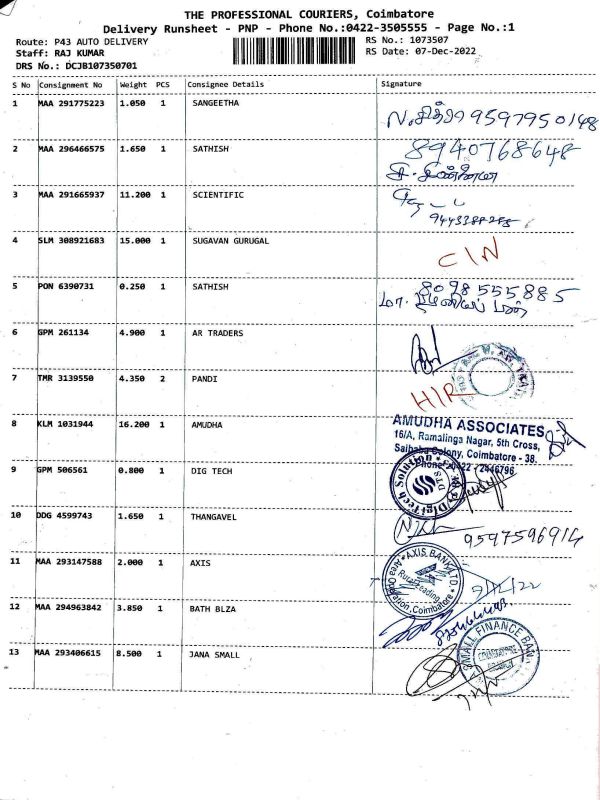 THE PROFESSIONAL COURIERS, Coimbatore
Delivery Runsheet - PNP - Phone No.:0422-3505555 - Page No.:1
Route: P43 AUTO DELIVERY
RS No.: 1073507
Staff: RAJ KUMAR
RS Date: 07-Dec-2022
DRS No.: DCJB107350701
S No Consignment No Weight PCS Consignee Details Signature
1 MAA 291775223 1.050 1 SANGEETHA
9597950148
2 MAA 296466575 1.650 1 SATHISH 8940768648
3 MAA 291665937 11.200 1 SCIENTIFIC
4 SLM 308921683 15.000 1 SUGAVAN GURUGAL CIN
5 PON 6390731 0.250 1 SATHISH 8098555885
6 GPM 261134 4.900 1 AR TRADERS
7 TMR 3139550 4.350 2 PANDI H/R
8 KLM 1031944 16.200 1 AMUDHA AMUDHA ASSOCIATES
16/A, Ramalinga Nagar, 5th Cross,
Saibaba Colony, Coimbatore - 38.
Phone 0422 - 2446796
9 GPM 506561 0.800 1 DIG TECH DigiTech Solution DTS
10 DDG 4599743 1.650 1 THANGAVEL 9597596914
11 MAA 293147588 2.000 1 AXIS AXIS BANK LTD. Coimbatore
12 MAA 294963842 3.850 1 BATH BLZA
13 MAA 293406615 8.500 1 JANA SMALL SMALL FINANCE BANK
COIMBATORE
BRANCH